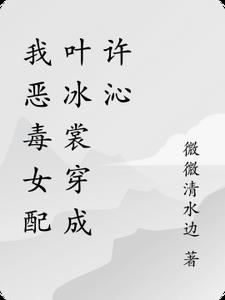 我恶毒女配
叶冰裳穿成
许沁
微微清水边 著